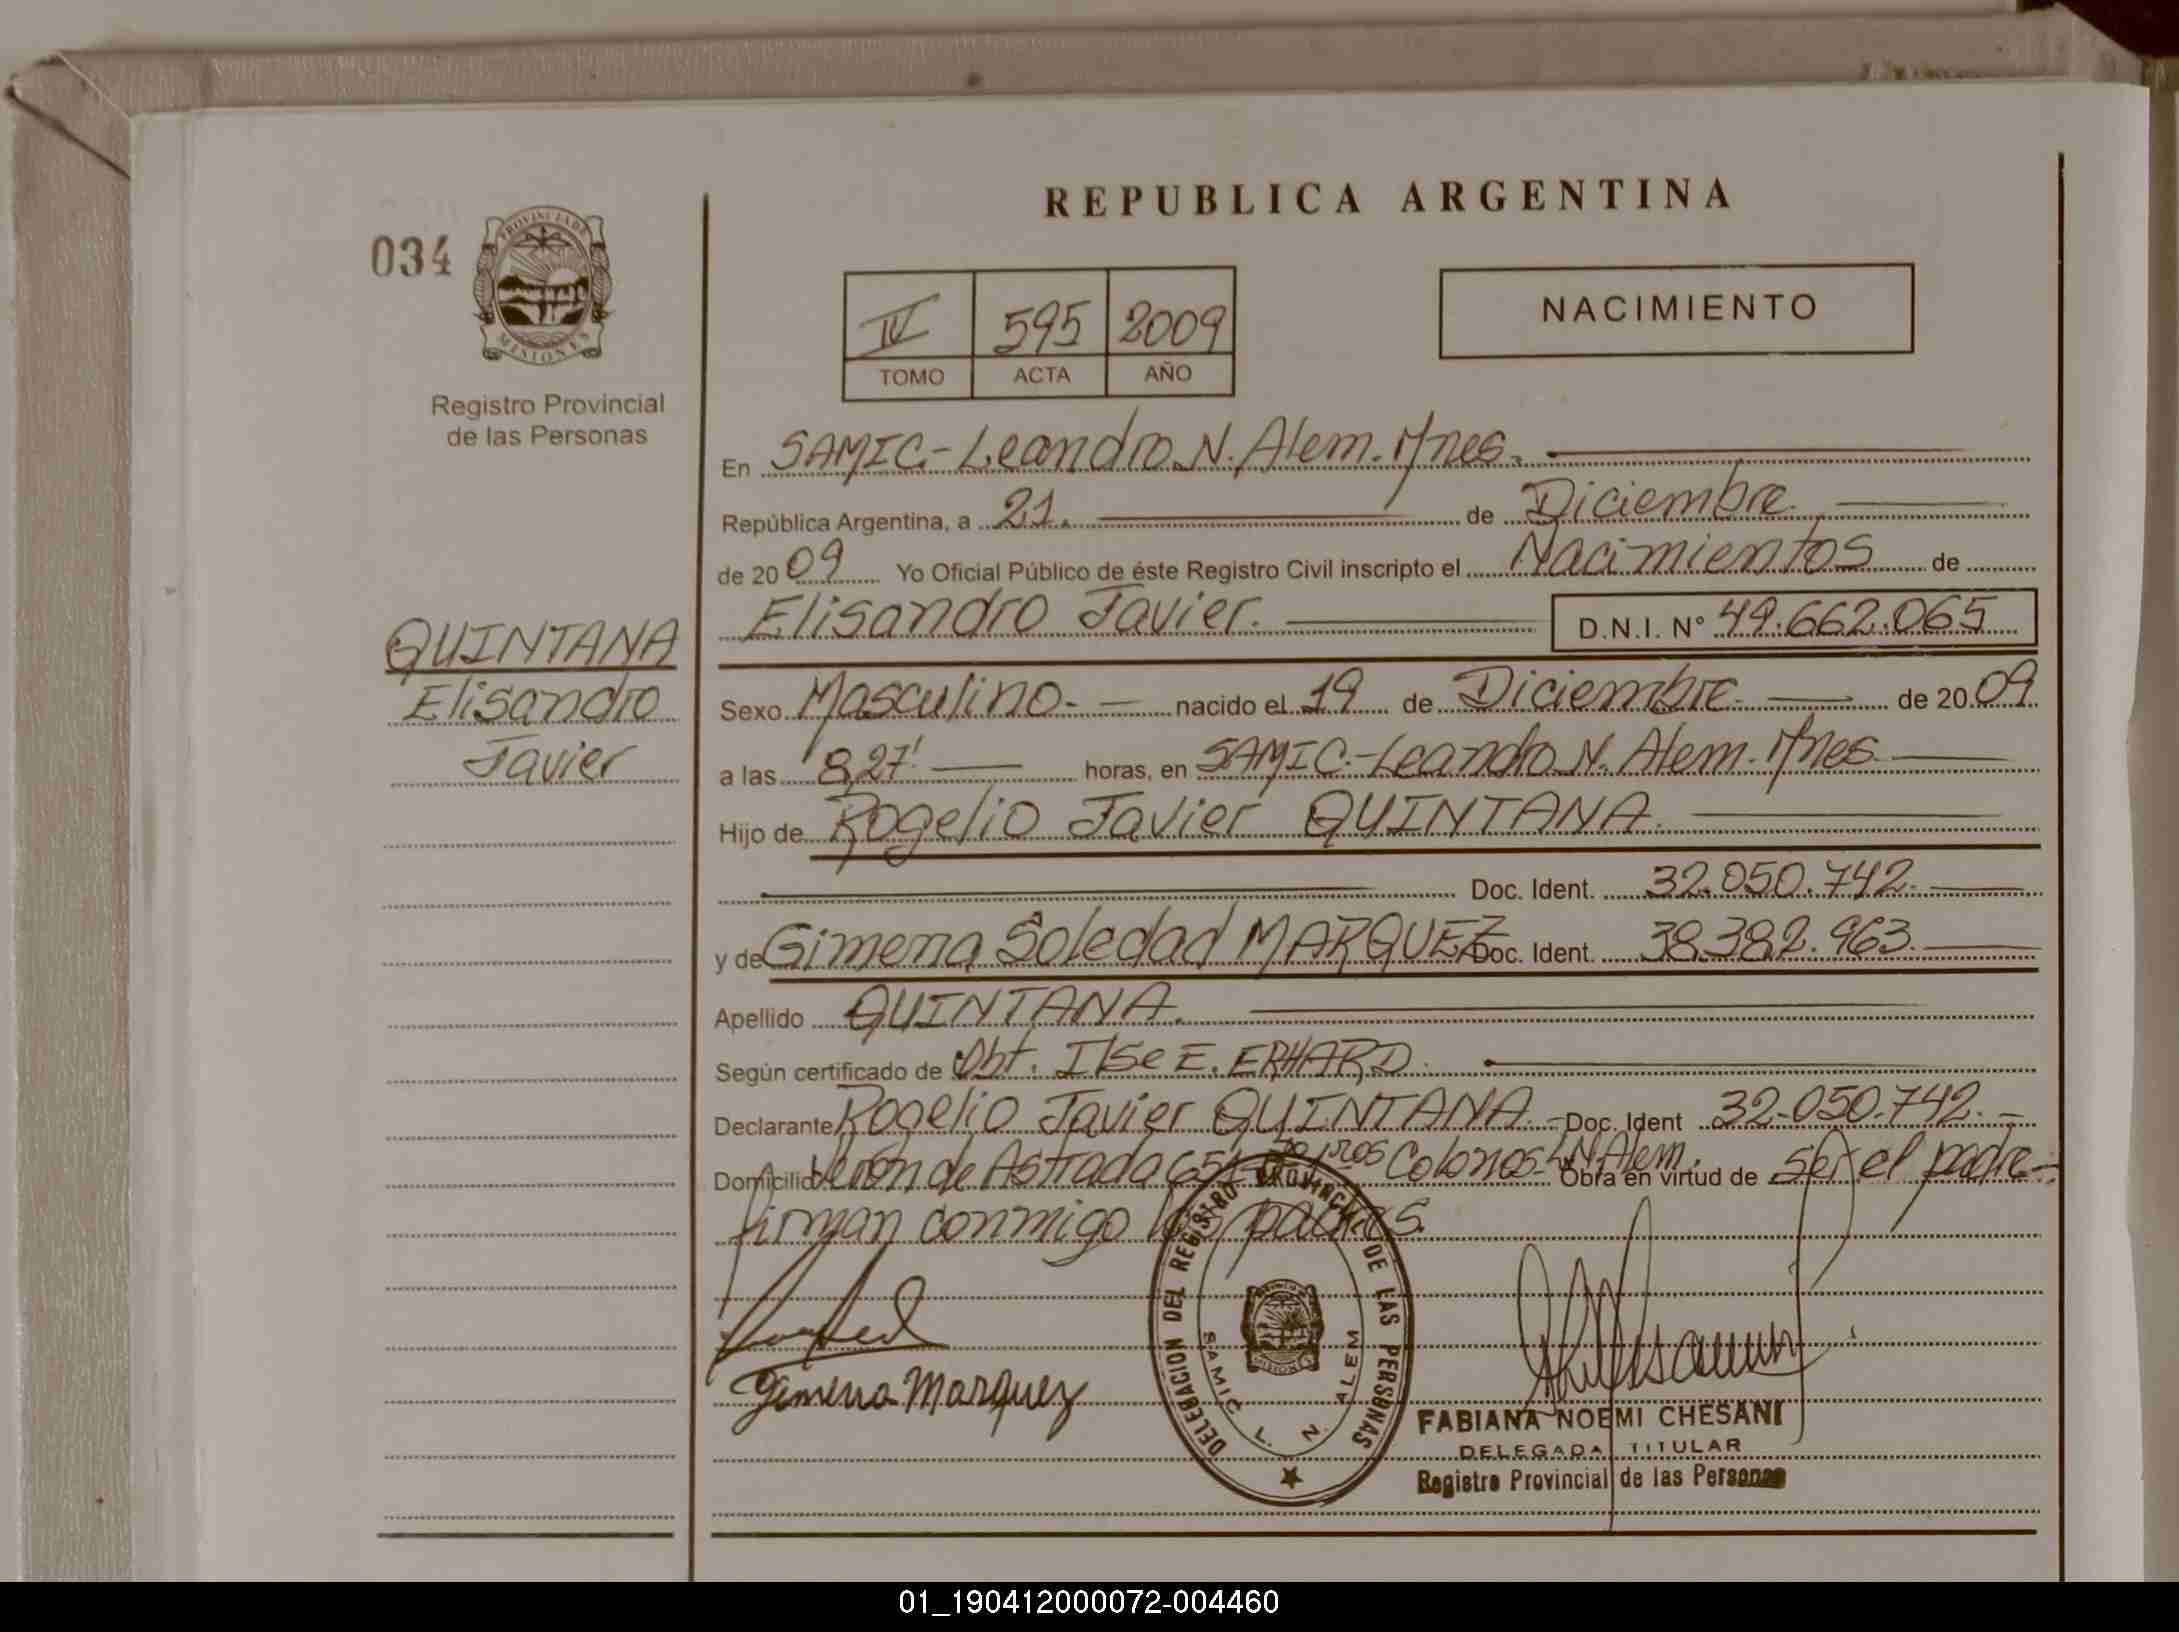 REPUBLICA ARGENTINA
034
PROVINCIA DE
MISIONES
Registro Provincial
de las Personas
IV 595 2009
TOMO ACTA AÑO
NACIMIENTO
En SAMIC.-Leandro N. Alem. Mnes.
República Argentina, a 21. de Diciembre
de 2009 Yo Oficial Público de éste Registro Civil inscripto el Nacimientos de
Elisandro Javier. D.N.I. N° 49.662.065
QUINTANA
Elisandro
Javier
Sexo Masculino.- nacido el 19 de Diciembre de 2009
a las 8,27' horas, en SAMIC.-Leandro N. Alem. Mnes.
Hijo de Rogelio Javier QUINTANA.
Doc. Ident. 32.050.742.
y de Gimena Soledad MARQUEZ Doc. Ident. 38.382.963.
Apellido QUINTANA.
Según certificado de Obt. Ilse E. ERHARD.
Declarante Rogelio Javier QUINTANA.- Doc. Ident 32.050.742.-
Domicilio Verón de Astrada 651 Colonos L.N.Alem. Obra en virtud de ser el padre-
firman conmigo los padres.
Gimena Marquez
DELEGACION DEL REGISTRO PROVINCIAL DE LAS PERSONAS
SAMIC L. N. ALEM
MISIONES
FABIANA NOEMI CHESANI
DELEGADA TITULAR
Registro Provincial de las Personas
01_190412000072-004460